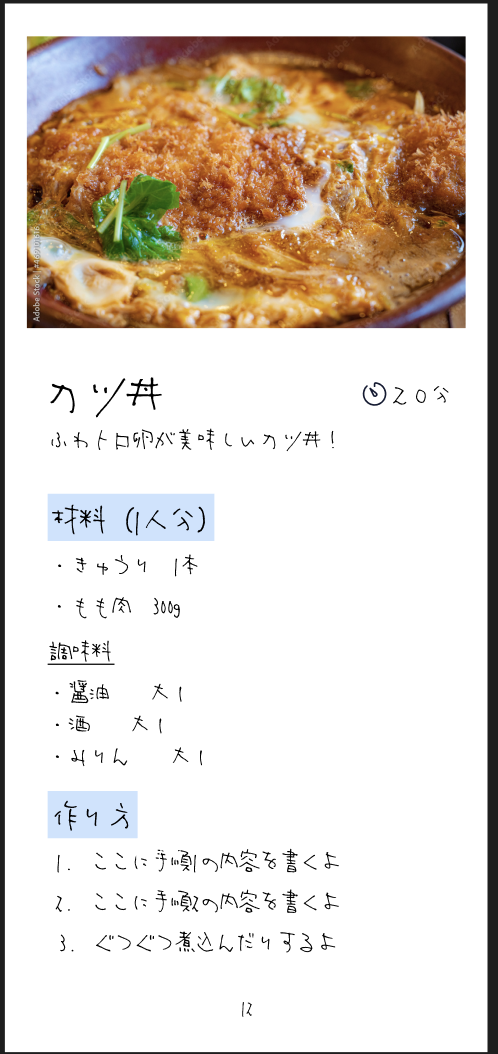 Adobe Stock | #469101616
カツ丼
20分
ふわトロ卵が美味しいカツ丼！
材料 (1人分)
・きゅうり 1本
・もも肉 300g
調味料
・醤油 大1
・酒 大1
・みりん 大1
作り方
1. ここに手順1の内容を書くよ
2. ここに手順2の内容を書くよ
3. ぐつぐつ煮込んだりするよ
12